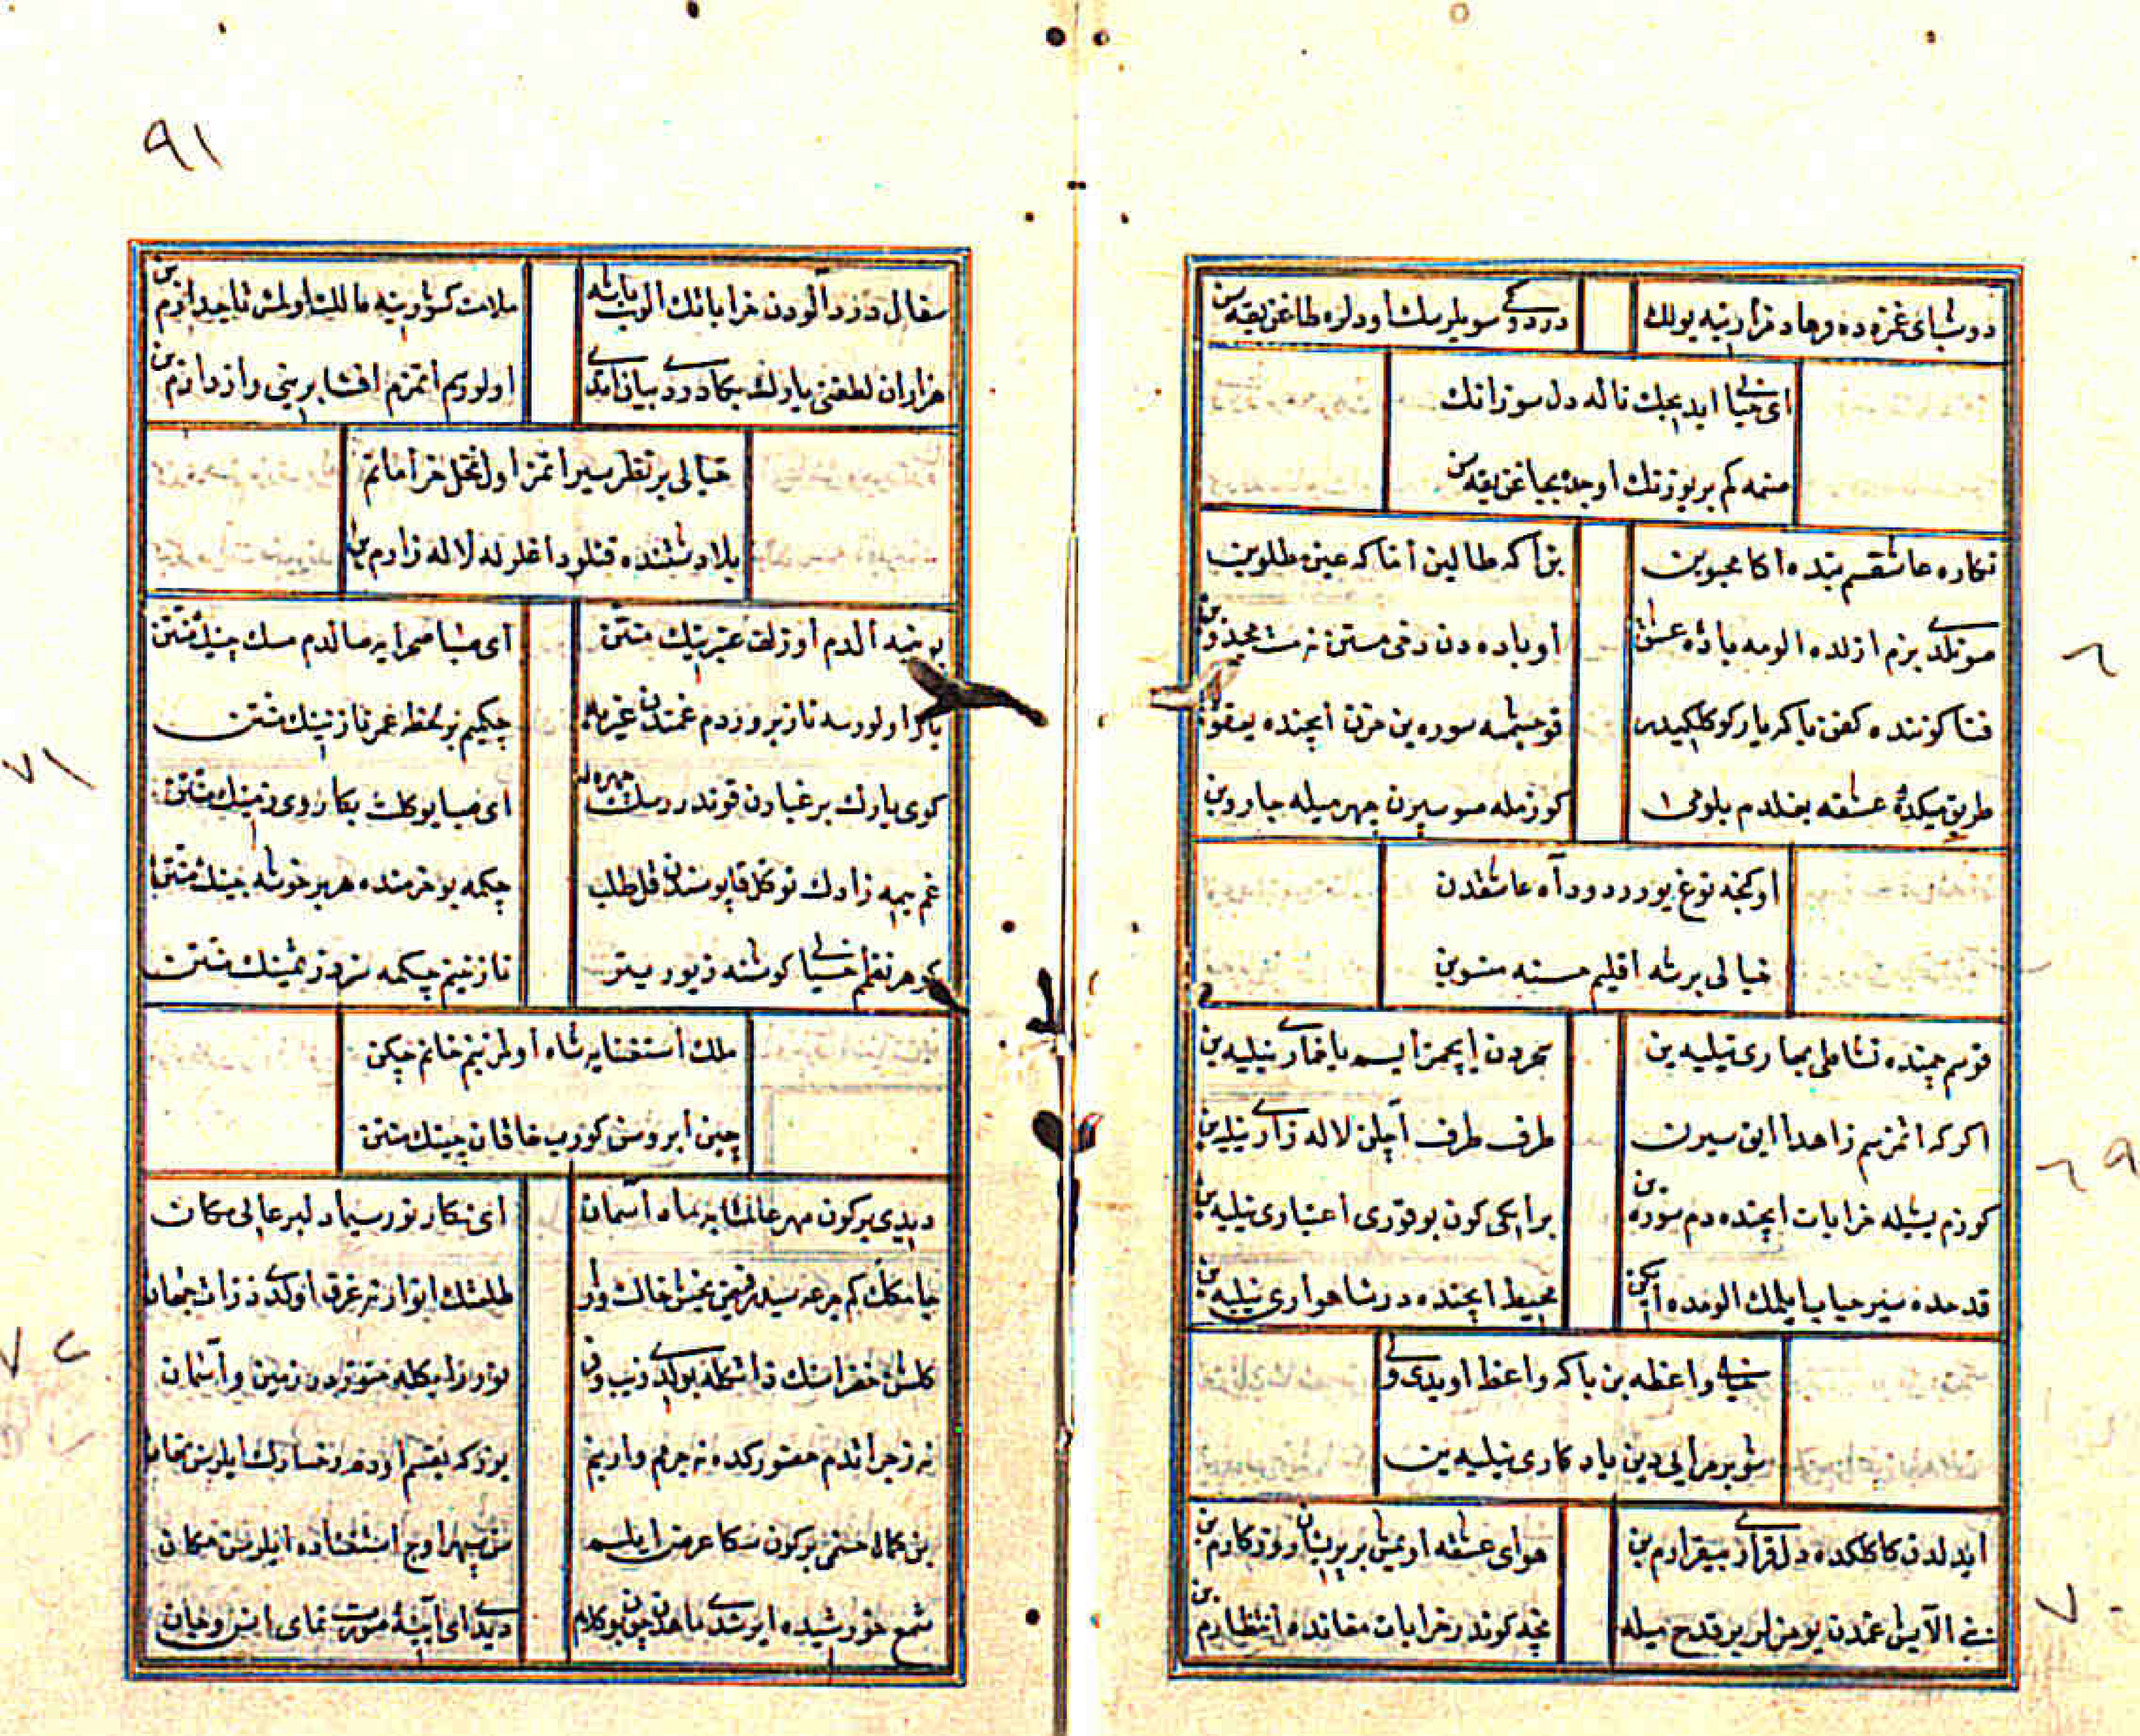 دوشبای غمزه ده وهاد مزارینه یولك
دردوکی سویلرسك اودلره طاغ یقه سن
ای خیالی ایدیجك ناله دل سوزانك
صنمه کم بر یوزنك اوجدن یحیا غن یقه سن
نکاره عاشقم بنده اکا محبوبن
بن اکه طالبن اناکه عین مطلوبن
صونلدی بزم ازلده المه باده عشق
او باده دن دخی مستن نه مست مجذوبن
فنا کوننده کفن پاکر یار کوکلکیدر
قو جبمسه سوره ین حزن ایچنده یعقوبن
طریق میکده عشقه بغلدم بلومی
کوزمله صو سپرن چهرمیله جاروبن
اوکجه طوغ یورر دود آه عاشقدن
خیالی بر شه اقلیم حسنه منسوبن
قوسم چمنده نشاطی بهاری نیلیه ین
سحردن ایچمز ایسم یا خماری نیلیه ین
اکرکه اتمزسم زاهدا این سیرن
طرف طرف آچلن لاله زاری نیلیه ین
کوزم یشیله خرابات ایچنده دم سورین
بر ایکی کون بو قوری اعتباری نیلیه ین
قدحده سیر حباب ایلمك الومده ایکن
محیط ایچنده در شاهواری نیلیه ین
خیالی واعظه بن باکه واعظ اویدی ولی
شو بر مرایی دین یادکاری نیلیه ین
ایدلدن کاکلکده دل قراری بیقرارم بن
هوای عشقله اویمش بر پریشان روزکارم بن
نی آلایش غمدن یومزلر بر قدح میله
نچه کوندر خرابات مغانده انتظارم بن
سفال درد آلودن خراباتك الوب باشه
ملامت کشورینه مالك اولمش تاجدارم بن
هزاران لطفنی یارك بکا دردی بیان ایتدی
اولورم اتمزم افشا برینی رازدارم بن
خیالی بر نظر سیر اتمز اول نخل خرامانم
بلا دشتنده قنلو داغلرله لاله زارم بن
بر ینیه الدم او زلف عنبرینك منتن
ای صبا صحرایه صالدم مسك چینك منتن
باکز اولورسه ناز بروردم غمندن غیریله
چکیم بر لحظه عمر نازنینك منتن
کوی یارك بر غبارن قوندرسك چهره مه
ای صبا یوکلت بکا روی زمینك منتن
غم یمه زادك توکل قاپوسندن قل طلب
چکمه بو خرمنده هر بر خوشه چینك منتن
کوهر نظم خیالی کوشنه زیور یتر
نازنینم چکمه سن در ثمینك منتن
ملك استغنایه شاه اولمز نیم خاتم چکن
چین ابروسن کورب خاقان چینك منتن
دیدی بر کون مهر عالمتابه ماه آسمان
ای نکار نور سیما دلبر عالی مکان
جامکك کم جرعه سیدر فیض بخش خاك وار
طلعتك انوارنه غرق اولدی ذرات جهان
کلشن خضرا سنك ذاتکله بولدی زیب و فر
نور رایکله منوردر زمین و آسمان
نه زجر اتدم حضورکده نه جرمم وار بنم
یوز که یقسم اوده رخسارك ایلرسن نهان
بن کمال حسنمی بر کون سکا عرض ایلسم
سن سپهر اوج استغناده ایلرسن مکان
شمع خورشیده ایرشدی ماهدن چون بو کلام
دیدی ای آیینه صورت نمای انس و جان
٩١
٦
٦٩
٧٠
٧١
٧٢